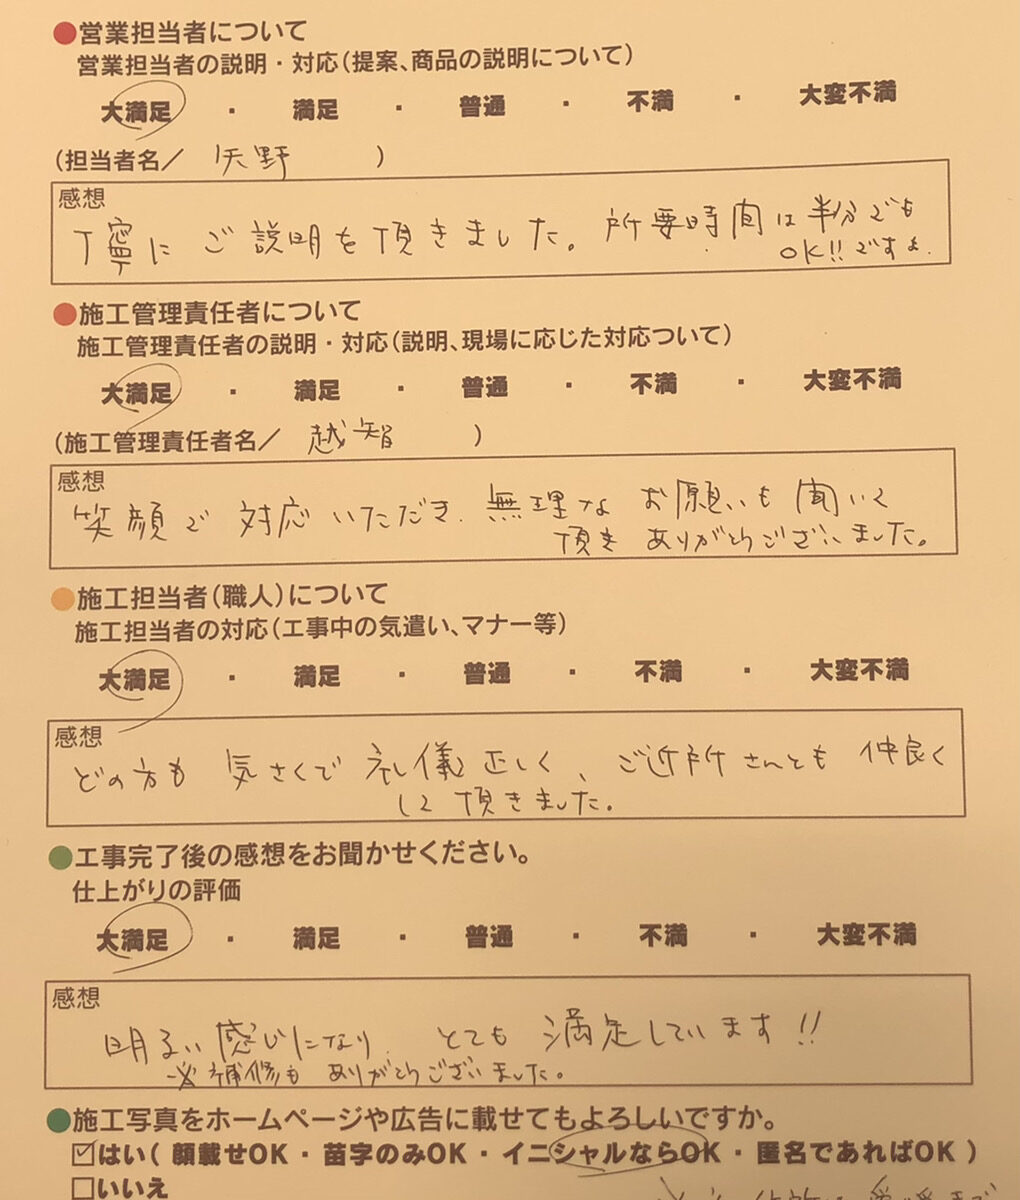 ●営業担当者について
営業担当者の説明・対応(提案、商品の説明について)
大満足 ・ 満足 ・ 普通 ・ 不満 ・ 大変不満
(担当者名/ 矢野 )
感想
丁寧に ご説明を頂きました。所要時間は半分でも
OK!!ですよ.
●施工管理責任者について
施工管理責任者の説明・対応(説明、現場に応じた対応ついて)
大満足 ・ 満足 ・ 普通 ・ 不満 ・ 大変不満
(施工管理責任者名/ 越智 )
感想
笑顔で 対応いただき. 無理な お願いも聞いて
頂き ありがとうございました。
●施工担当者(職人)について
施工担当者の対応(工事中の気遣い、マナー等)
大満足 ・ 満足 ・ 普通 ・ 不満 ・ 大変不満
感想
どの方も 気さくで 礼儀正しく、ご近所さんとも 仲良く
して頂きました。
●工事完了後の感想をお聞かせください。
仕上がりの評価
大満足 ・ 満足 ・ 普通 ・ 不満 ・ 大変不満
感想
明るい感じになり. とても 満足しています!!
補修も ありがとうございました。
●施工写真をホームページや広告に載せてもよろしいですか。
☑はい( 顔載せOK ・ 苗字のみOK ・ イニシャルならOK ・ 匿名であればOK )
□いいえ